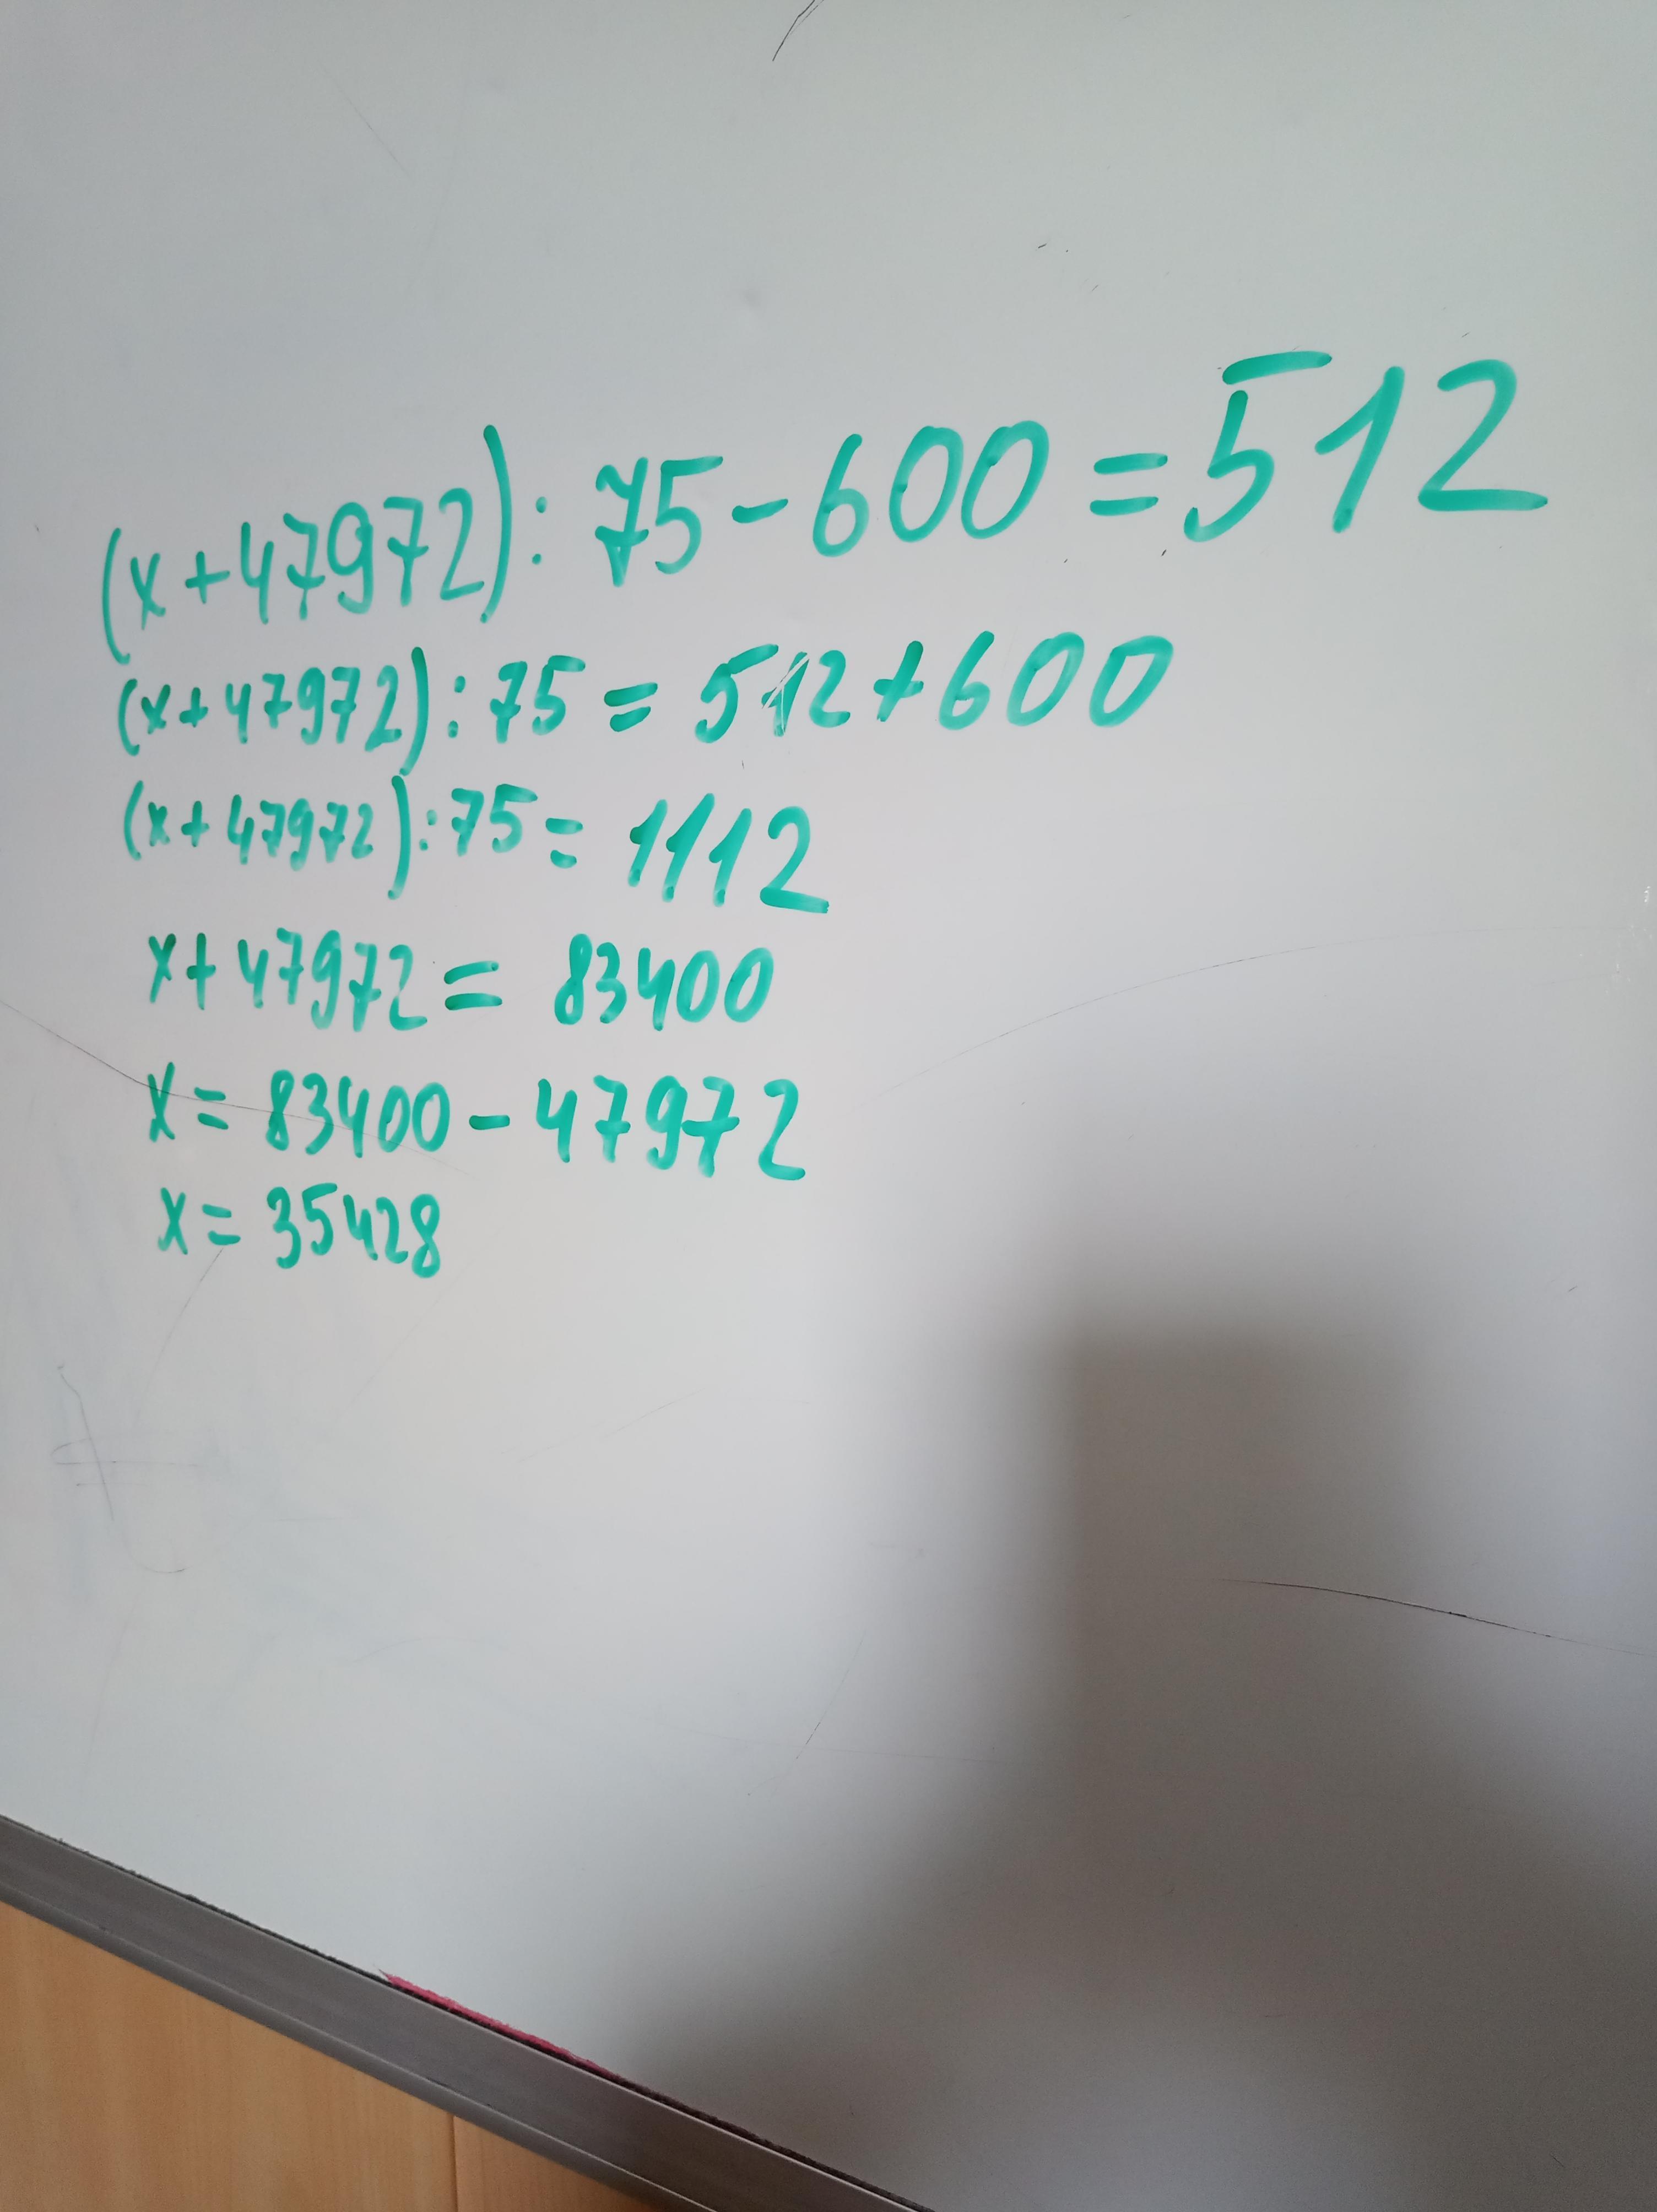 (x+47972): 75-600=512
(x+47972):75=512+600
(x+47972):75=1112
x+47972=83400
x=83400-47972
x=35428